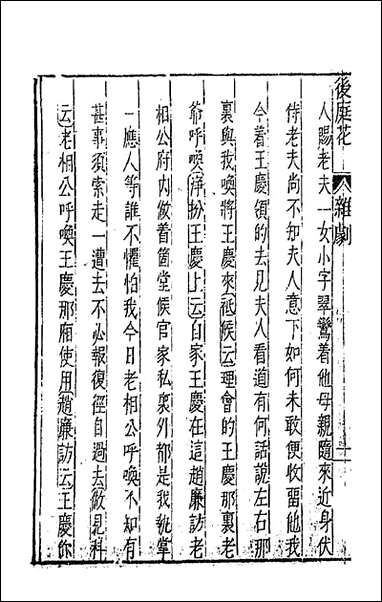 後庭花 雜劇 一
人賜老夫一女小字翠鸞着他母親隨來近身伏
侍老夫尚不知夫人意下如何未敢便收留他我
今着王慶領的去見夫人看道有何話說左右那
裏與我喚將王慶來祗候云理會的王慶那裏老
爺呼喚淨扮王慶上云自家王慶在這趙廉訪老
相公府内做着箇堂候官家私裏外都是我執掌
一應人等誰不懼怕我今日老相公呼喚不知有
甚事須索走一遭去不必報復徑自過去做見科
云老相公呼喚王慶那廂使用趙廉訪云王慶你